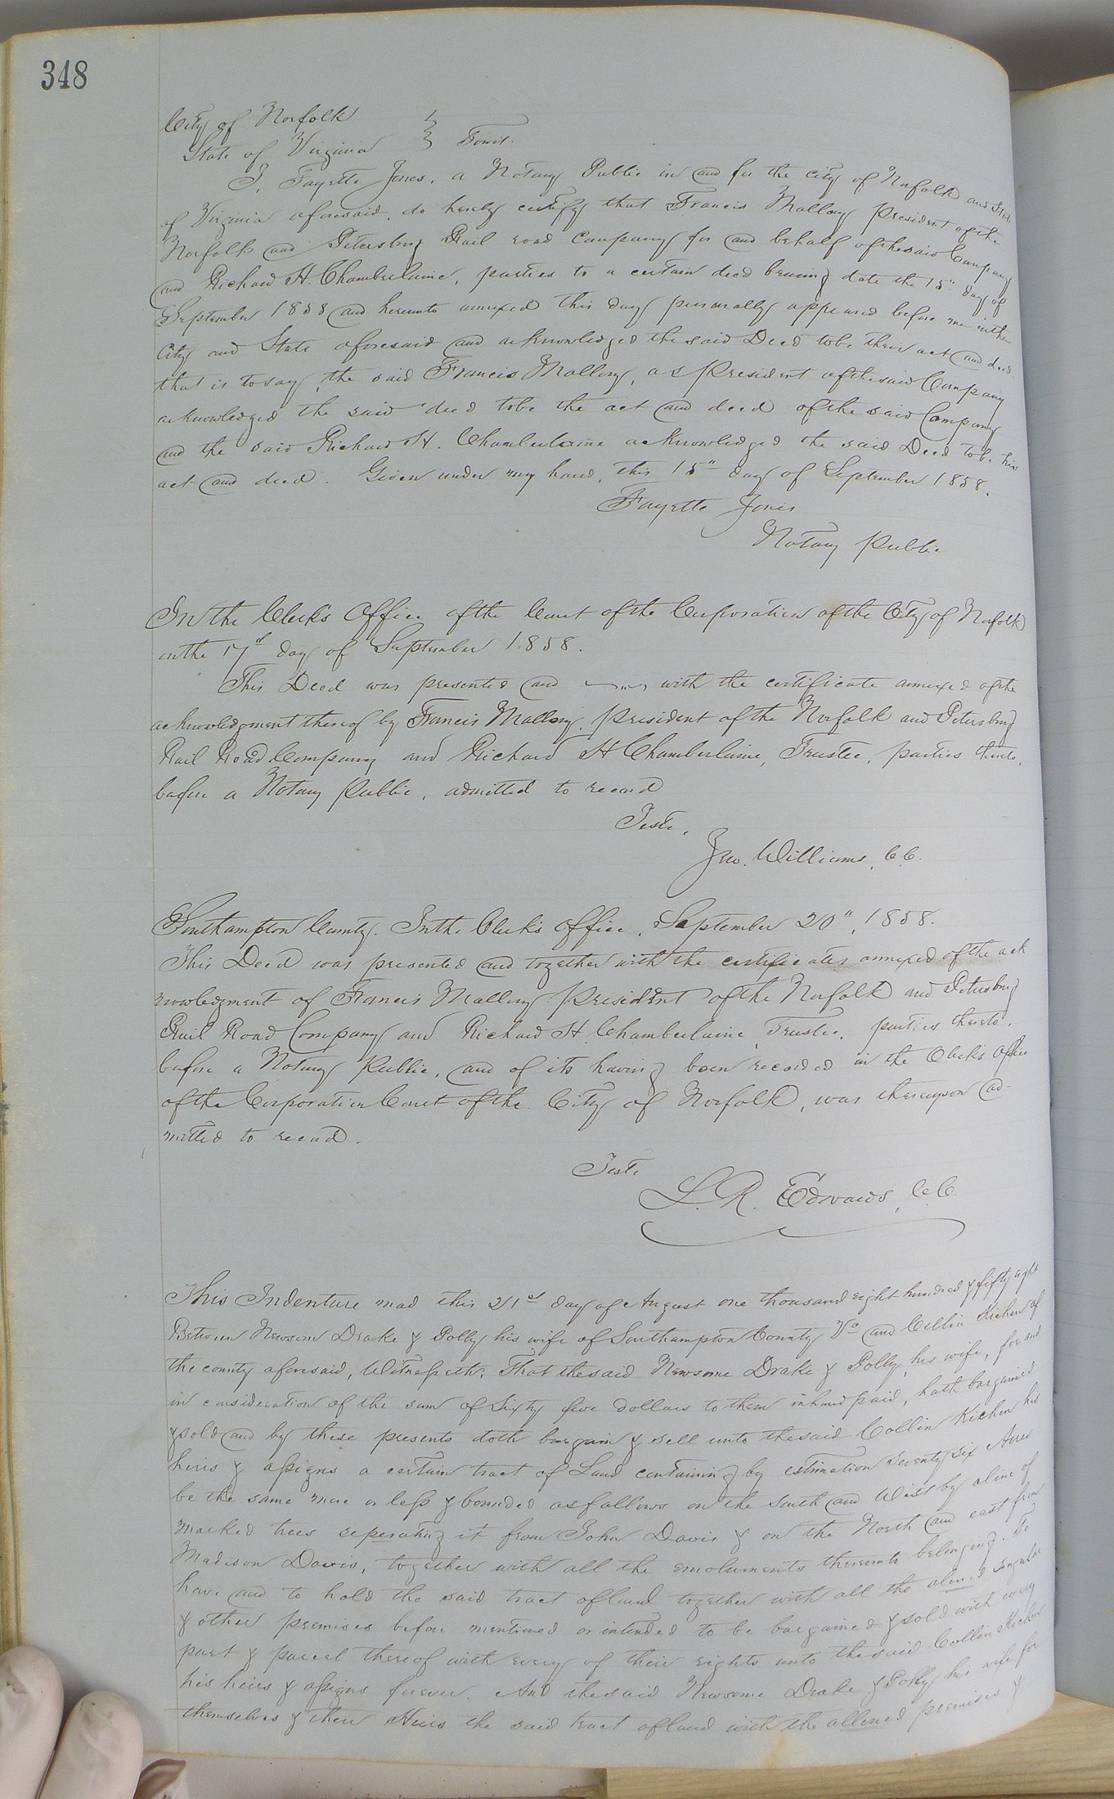 348
City of Norfolk
State of Virginia } Towit.
I, Fayette Jones, a Notary Public in and for the city of Norfolk and State
of Virginia aforesaid, do hereby certify that Francis Mallory President of the
Norfolk and Petersburg Rail road Company for and behalf of the said Company
and Richard H. Chamberlaine, parties to a certain deed bearing date the 15" day of
September 1858 and hereunto annexed this day personally appeared before me in the
City and State aforesaid and acknowledged the said Deed to be their act and deed
that is to say, the said Francis Mallory, as President of the said Company
acknowledged the said deed to be the act and deed of the said Company
and the said Richard H. Chamberlaine acknowledged the said Deed to be his
act and deed. Given under my hand, this 15" day of September 1858.
Fayette Jones
Notary Public
In the Clerk's Office of the Court of the Corporation of the City of Norfolk
on the 17d day of September 1858.
This Deed was presented and with the certificate annexed of the
acknowledgment thereof by Francis Mallory, President of the Norfolk and Petersburg
Rail Road Company and Richard H Chamberlaine, Trustee, parties thereto,
before a Notary Public, admitted to record
Teste,
Jno. Williams, C.C.
Southampton County. In the Clerk's Office, September 20", 1858.
This Deed was presented and together with the certificates annexed of the ack
nowledgment of Francis Mallory President of the Norfolk and Petersburg
Rail Road Company and Richard H. Chamberlaine, Trustee, parties thereto,
before a Notary Public, and of its having been recorded in the Clerk's Office
of the Corporation Court of the City of Norfolk, was thereupon ad-
mitted to record.
Teste
L. R. Edwards, C.C.
This Indenture mad this 21st day of August one thousand eight hundred & fifty eight
Between Newsom Drake & Polly his wife of Southampton County Va and Collin Kichen of
the county aforesaid, Witnesseth; That the said Newsome Drake & Polly, his wife, for and
in consideration of the sum of Sixty five dollars to them in hand paid, hath bargained
& sold and by these presents doth bargain & sell unto the said Collin Kichen his
heirs & assigns a certain tract of Land containing by estimation Seventy six Acres
be the same more or less & bounded as follows on the South and West by a line of
marked trees seperating it from John Davis & on the North and east from
Madison Davis, together with all the emoluments thereunto belonging. To
have and to hold the said tract of land together with all the aloned singular
& other premises before mentioned or intended to be bargained & sold with every
part & parcel thereof with every of their rights unto the said Collin Kichen
his heirs & assigns forever. And the said Newsome Drake & Polly his wife for
themselves & their Heirs the said tract of land with the allened premises &